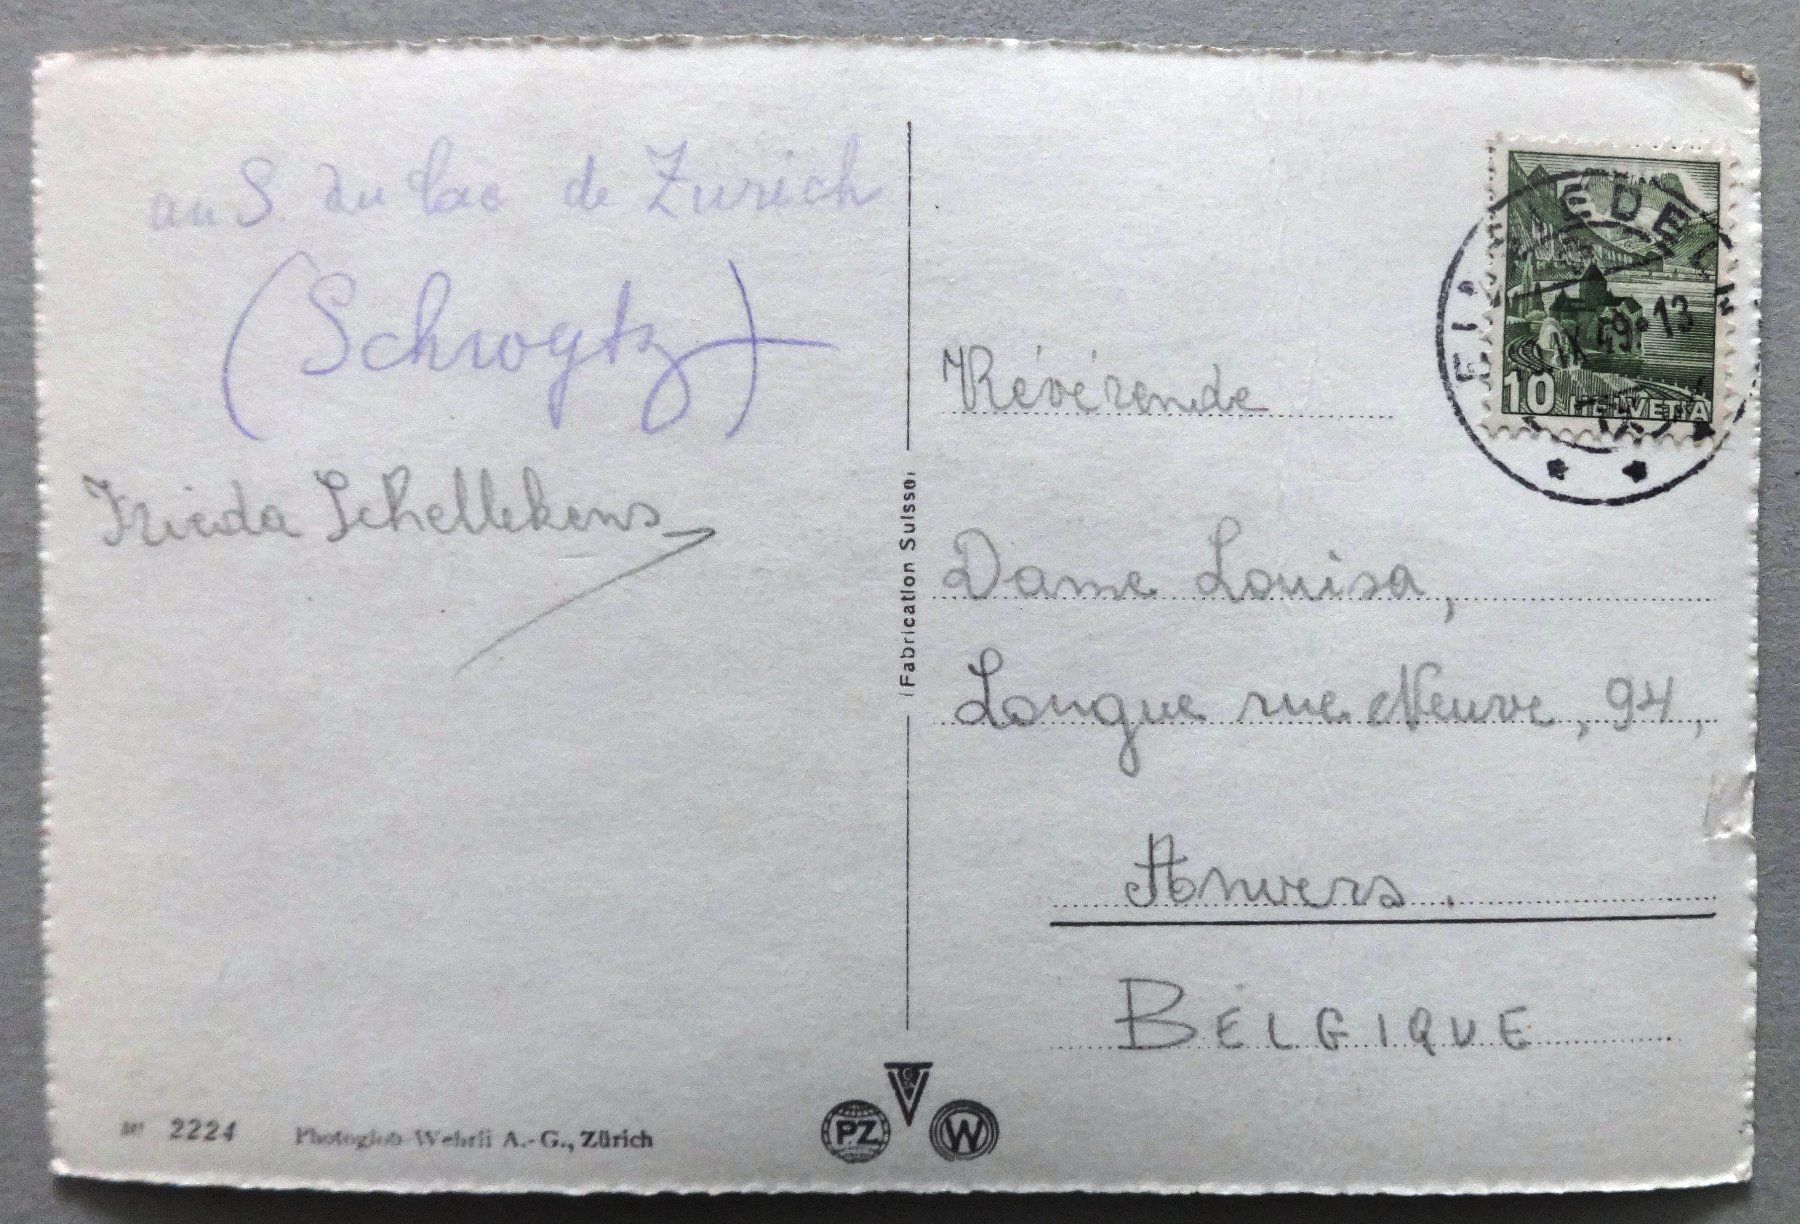 au S. du lac de Zurich
(Schwytz)
Frieda Schellekens
2224
Photoglob-Wehrli A.-G., Zürich
Fabrication Suisse
PZ
W
EINSIEDELN
IX 49.-13
10 HELVETIA
Révérende
Dame Louisa,
Longue rue Neuve, 94,
Anvers.
BELGIQUE